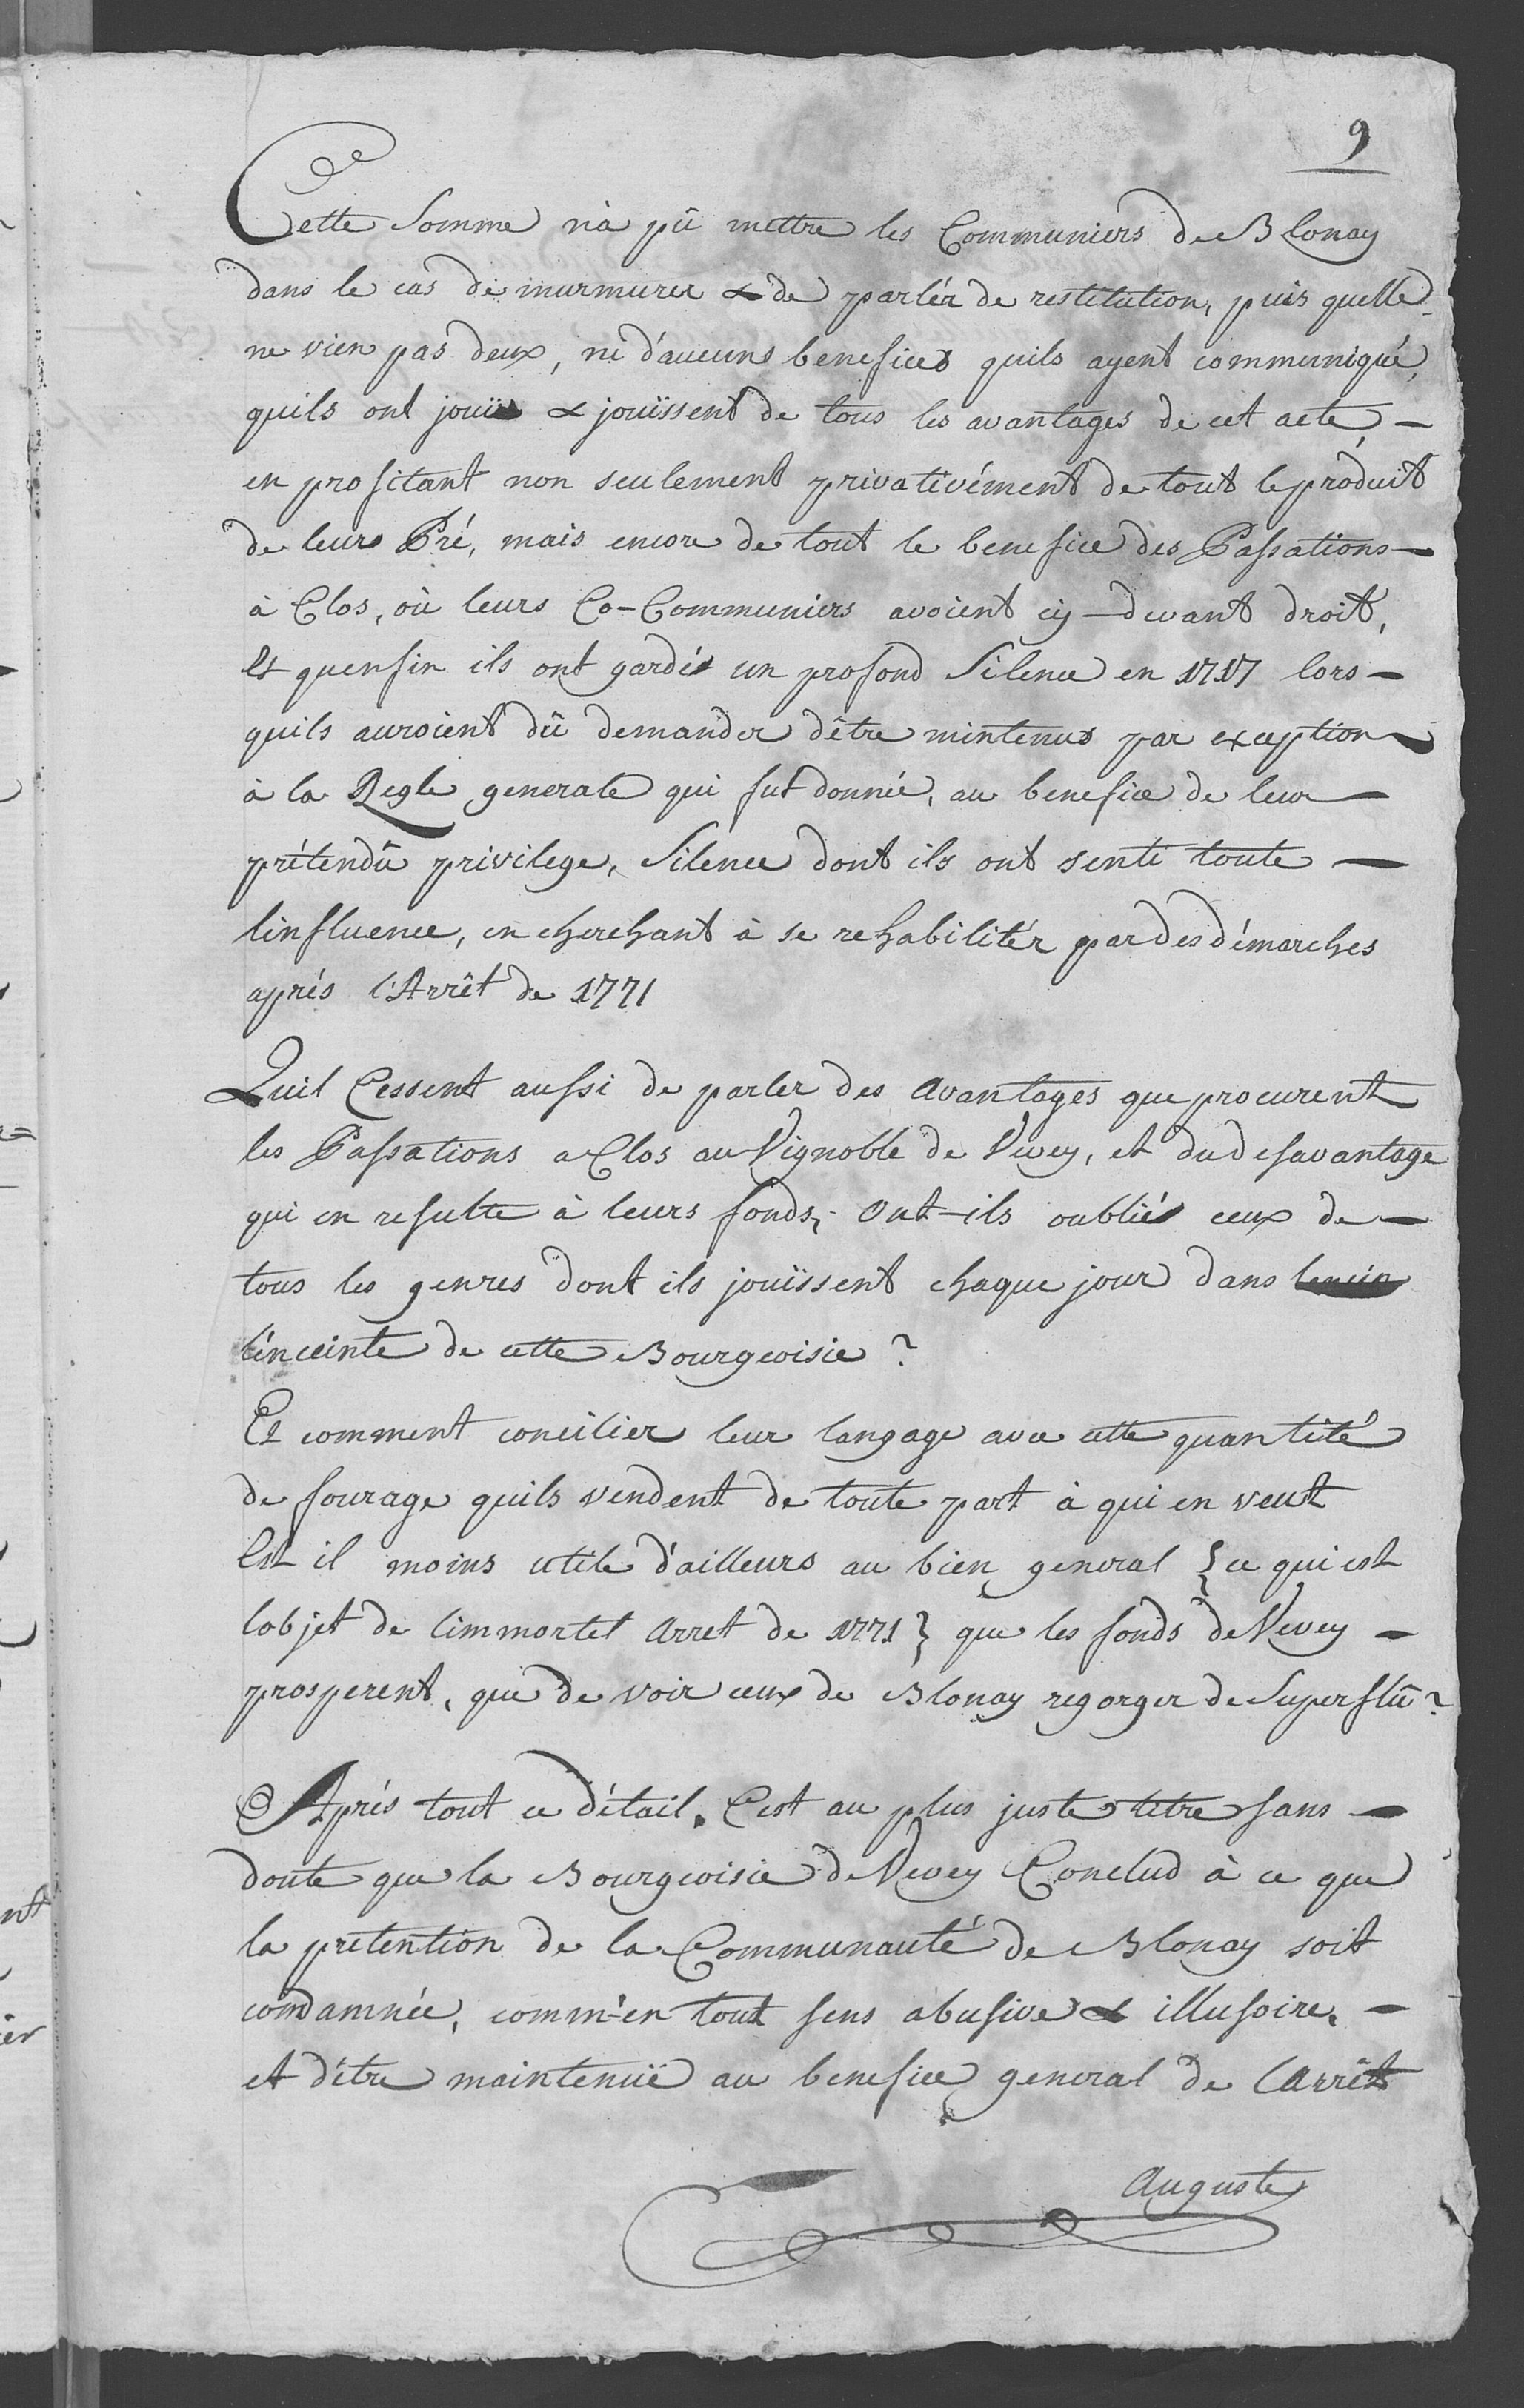 9
Cette Somme n'à pû mettre les Communiers de Blonay
dans le cas de murmurer & de parlér de restitution, puis quelle
ne vien pas deux, ni d'aucuns benefices quils ayent communiqué,
quils ont jouïs & jouïssent de tous les avantages de cet acte, -
en profitant non seulement privativément de tout le produit
de leurs Pré, mais encore de tout le benefice des Passations -
à Clos, où leurs Co-Communiers avoient cy-devant droit,
Et quenfin ils ont gardés un profond Silence en 1717 lors -
quils auroient dû demander d'être mintenus par exception
à la Regle generale qui fut donnée, au benefice de leur -
prétendû privilege, Silence dont ils ont senti toute -
linfluence, en cherchant à se rehabilitér par des démarches
aprés l'Arrêt de 1771
Quil Cessent aussi de parler des avantages que procurent
les Passations a Clos au Vignoble de Vevey, et du desavantage
qui en resulte à leurs fonds, Ont-ils oubliés ceux de -
tous les genres dont ils jouïssent chaque jour dans
l'énceinte de cette Bourgeoisie ?
Et comment concilier leur langage avec cette quantité
de fourage quils vendent de toute part à qui en veut
Est il moins utile d'ailleurs au bien general { ce qui est
lobjet de limmortel arret de 1771 } que les fonds de Vevey -
prosperent, que de voir ceux de Blonay regorger de Superflû ?
Aprés tout ce détail, C'est au plus juste titre sans -
doute que la Bourgeoisie de Vevey Conclud à ce que
la pretention de la Communauté de Blonay soit
condamnée, comm'en tout sens abusive & illusoire, -
et d'être maintenuë au benefice general de l'arrêt
Auguste